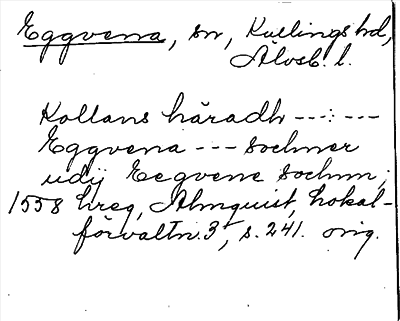 Eggvena, sn, Kullings hd,
Älvsb. l.
Kollans häradh ---:---
Eggvena --- sochner
udij Eegvene sochnn;
1558 hreg, Almquist, Lokal-
förvaltn. 3, s. 241. orig.